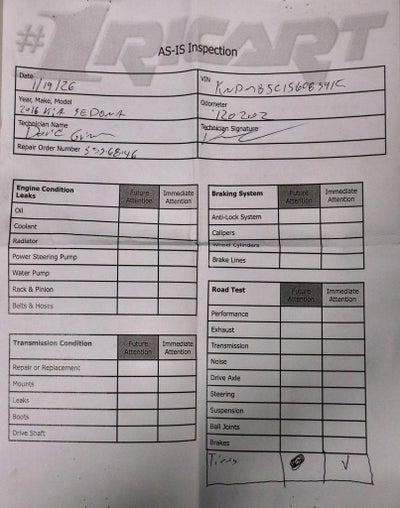 #1 RICART
AS-IS Inspection
Date
1/19/26
VIN
Year, Make, Model
2016 KIA SEDONA
Odometer
120202
Technician Name
Technician Signature
Repair Order Number
Engine Condition Leaks Future Attention Immediate Attention
Oil
Coolant
Radiator
Power Steering Pump
Water Pump
Rack & Pinion
Belts & Hoses
Transmission Condition Future Attention Immediate Attention
Repair or Replacement
Mounts
Leaks
Boots
Drive Shaft
Braking System Future Attention Immediate Attention
Anti-Lock System
Calipers
Wheel Cylinders
Brake Lines
Road Test Future Attention Immediate Attention
Performance
Exhaust
Transmission
Noise
Drive Axle
Steering
Suspension
Ball Joints
Brakes
Tires √